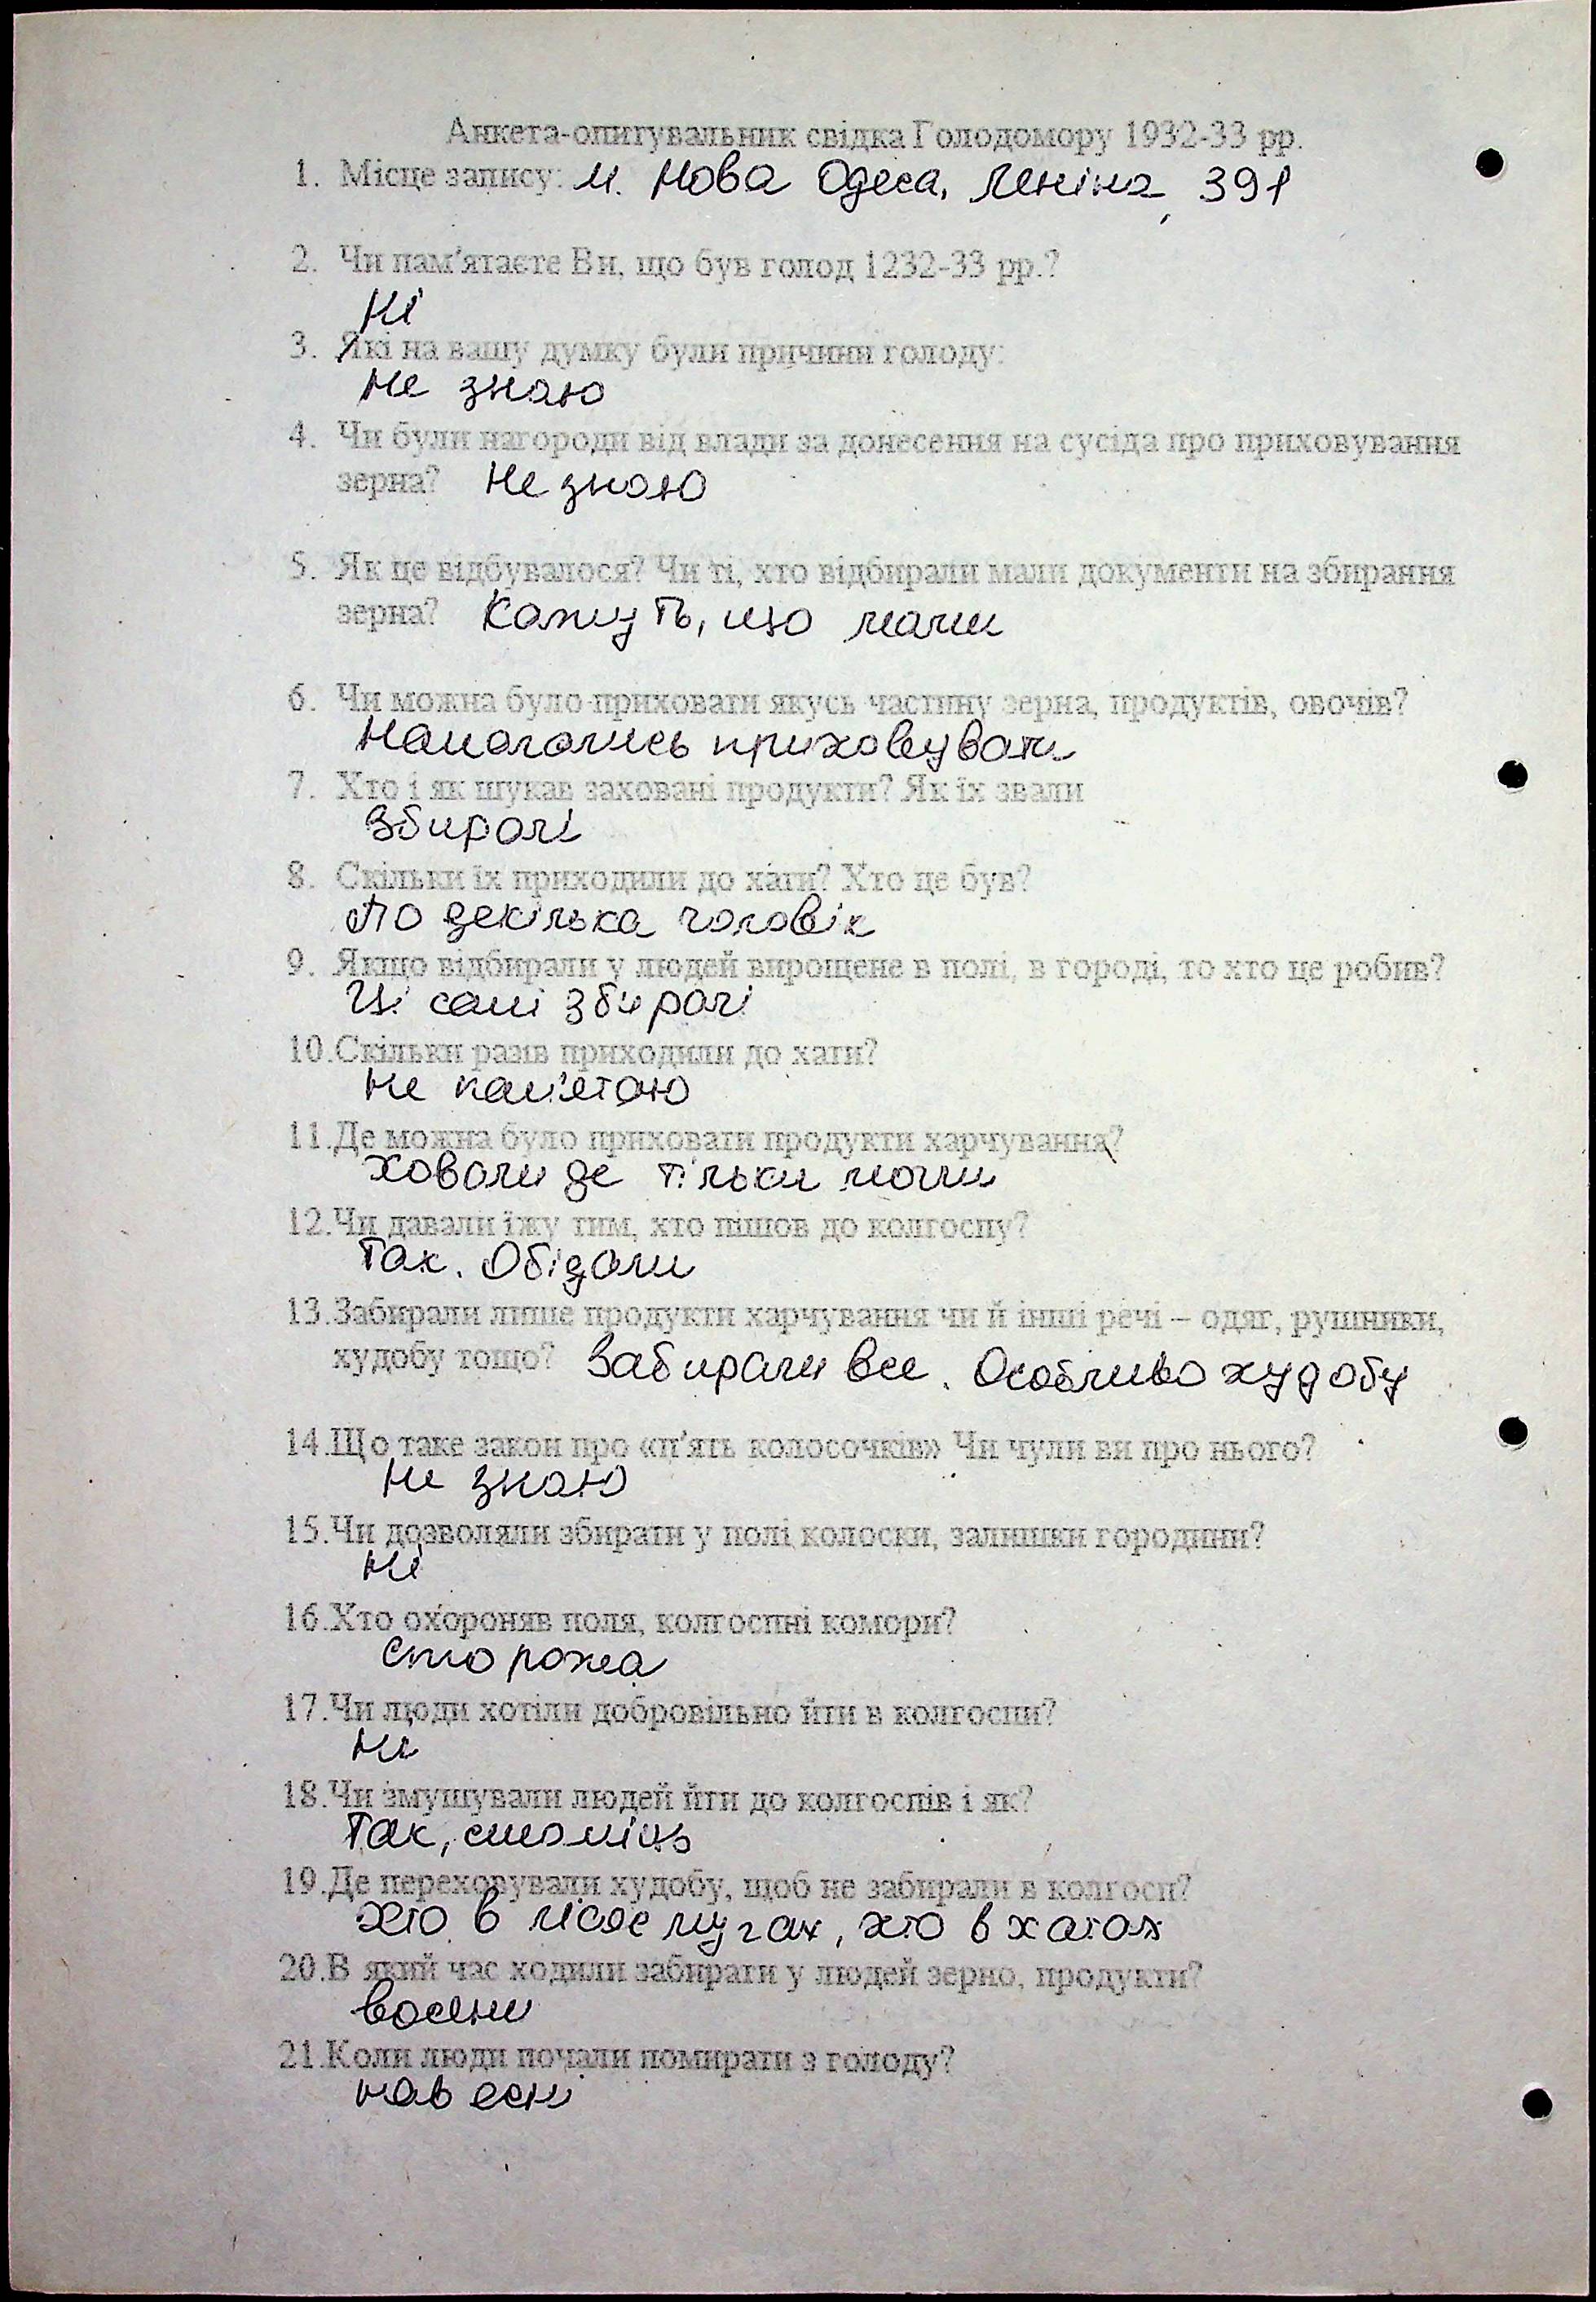 Анкета-опитувальник свідка Голодомору 1932-33 рр.
1. Місце запису: м. Нова Одеса, Леніна, 391
2. Чи пам'ятаєте Ви, що був голод 1232-33 рр.?
Ні
3. Які на вашу думку були причини голоду:
Не знаю
4. Чи були нагороди від влади за донесення на сусіда про приховування
зерна? Не знаю
5. Як це відбувалося? Чи ті, хто відбирали мали документи на збирання
зерна? Кажуть, що мали
6. Чи можна було приховати якусь частину зерна, продуктів, овочів?
Намагались приховувати
7. Хто і як шукав заховані продукти? Як їх звали
Збирачі
8. Скільки їх приходили до хати? Хто це був?
По декілька чоловік
9. Якщо відбирали у людей вирощене в полі, в городі, то хто це робив?
Ці самі збирачі
10.Скільки разів приходили до хати?
Не пам'ятаю
11.Де можна було приховати продукти харчування?
Ховали де тільки могли
12.Чи давали їжу тим, хто пішов до колгоспу?
Так. Обідали
13.Забирали лише продукти харчування чи й інші речі – одяг, рушники,
худобу тощо? Забирали все. Особливо худобу
14.Що таке закон про «п'ять колосочків» Чи чули ви про нього?
Не знаю
15.Чи дозволяли збирати у полі колоски, залишки городини?
Ні
16.Хто охороняв поля, колгоспні комори?
сторожа
17.Чи люди хотіли добровільно йти в колгоспи?
Ні
18.Чи змушували людей йти до колгоспів і як?
Так,
19.Де переховували худобу, щоб не забирали в колгосп?
Хто в лісосмугах, хто в хатах
20.В який час ходили забирати у людей зерно, продукти?
восени
21.Коли люди почали помирати з голоду?
навесні